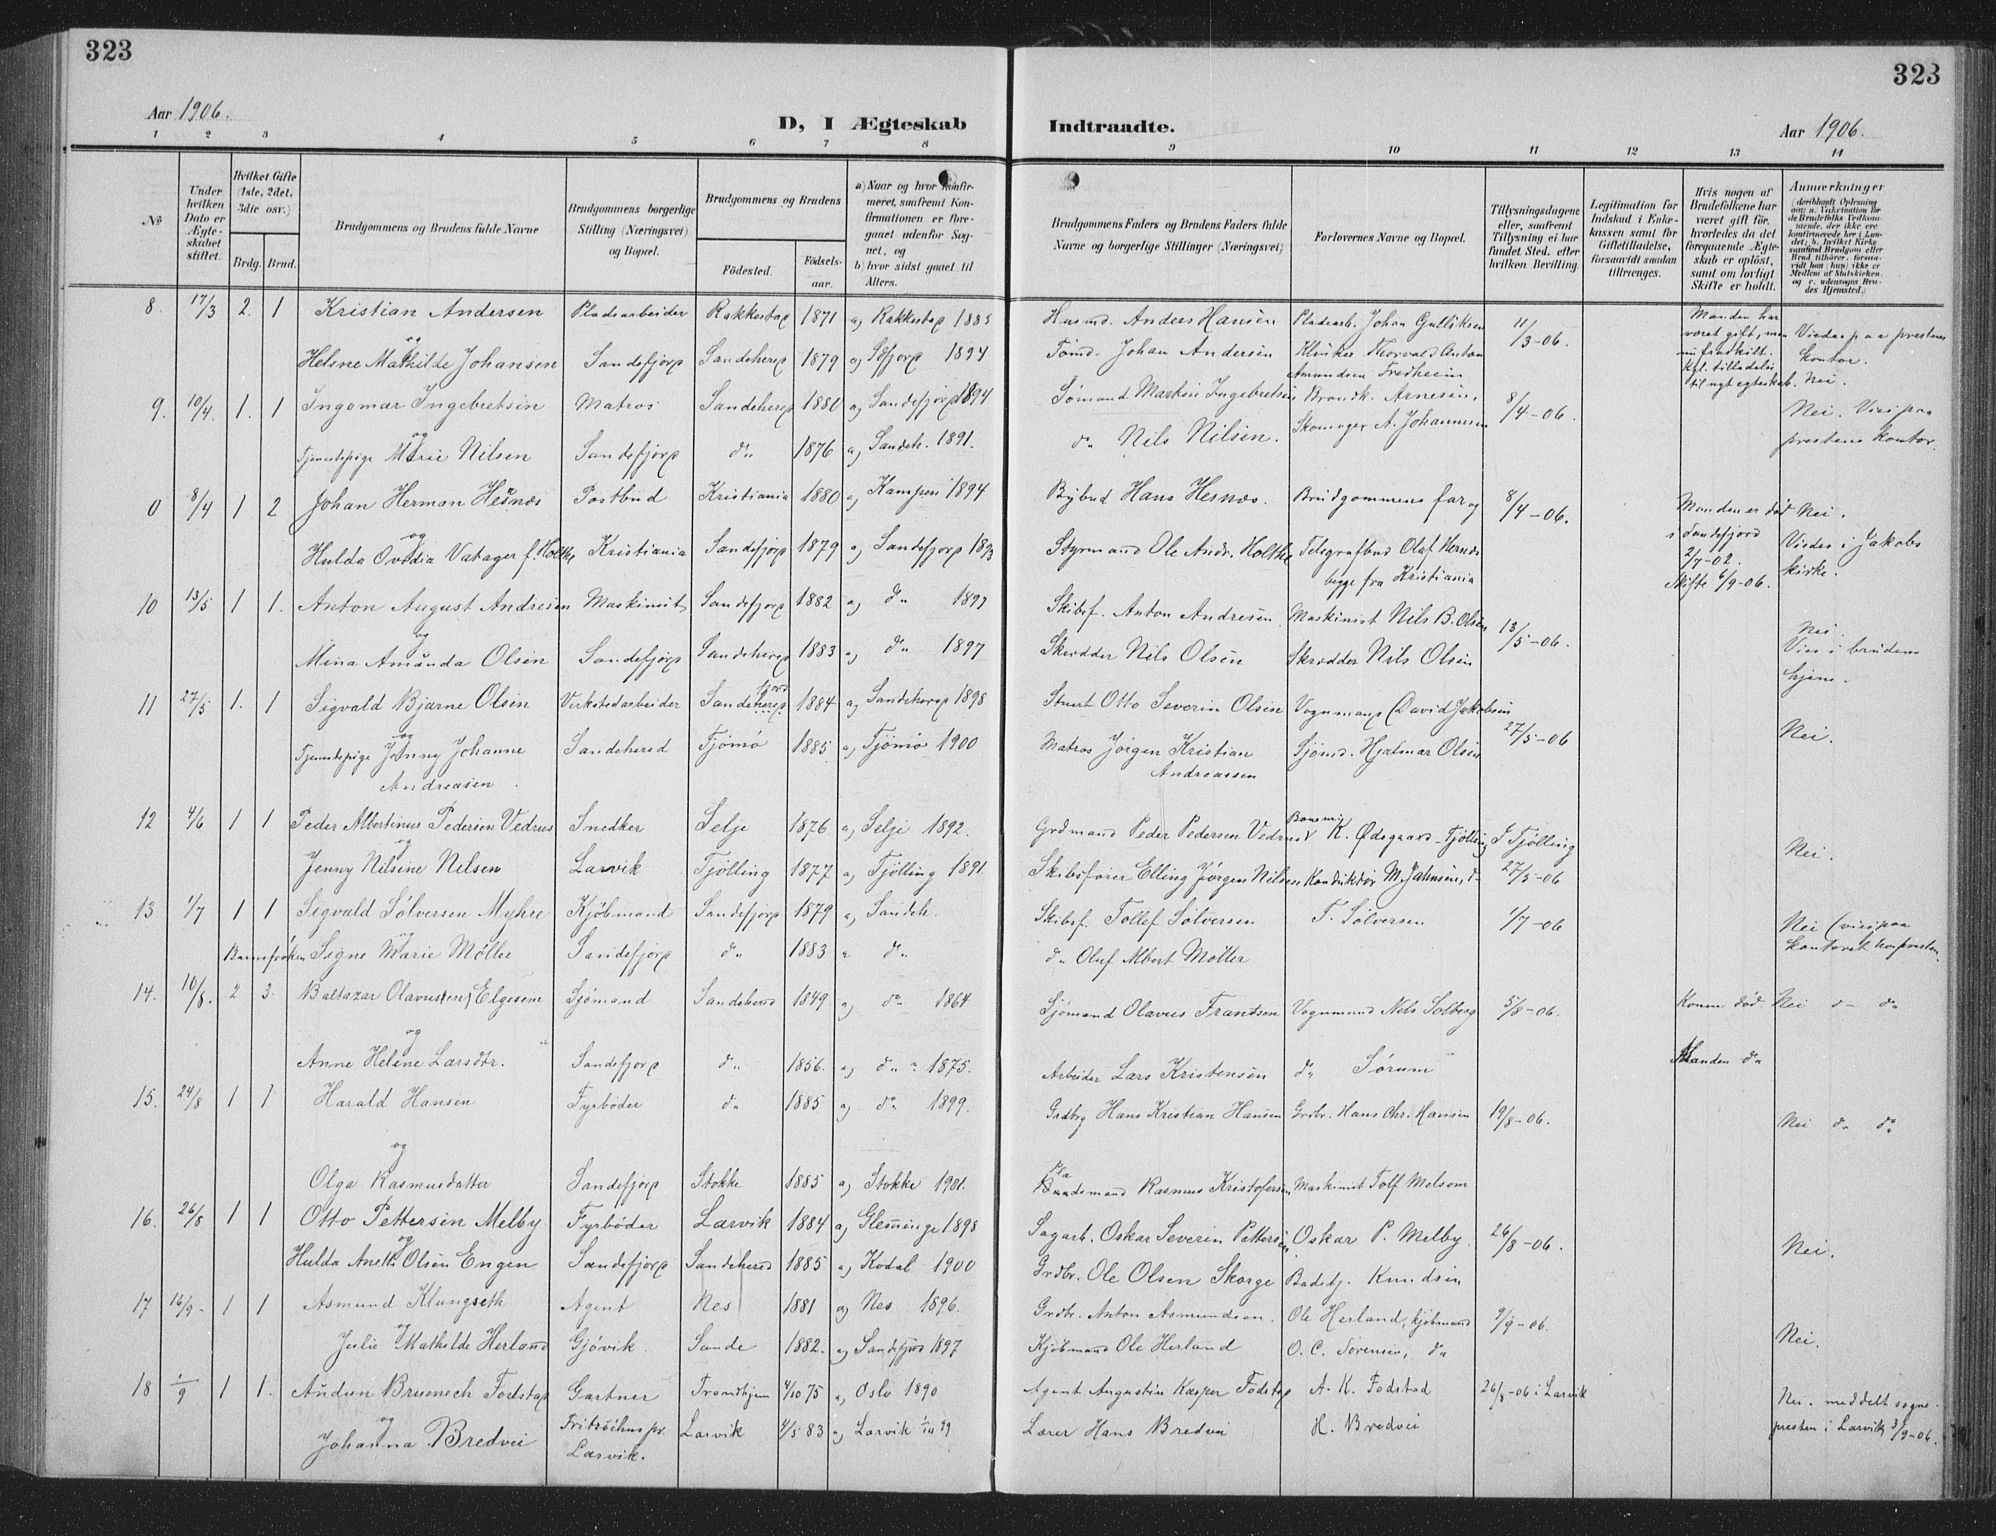 323
323
Aar 1906.
D, I Ægteskab
Indtraadte.
Aar 1906.
1 2 3 4 5 6 7 8 9 10 11 12 13 14
№
Under hvilken Dato er Ægteskabet stiftet.
Hvilket Gifte (1ste, 2det, 3die osv.)
Brdg. Brud.
Brudgommens og Brudens fulde Navne
Brudgommens borgerlige Stilling (Næringsvei) og Bopæl.
Brudgommens og Brudens
Fødested.
Fødselsaar.
a) Naar og hvor konfirmeret, saafremt Konfirmationen er foregaaet udenfor Sognet, og
b) hvor sidst gaaet til Alters.
Brudgommens Faders og Brudens Faders fulde Navne og borgerlige Stillinger (Næringsvei)
Forlovernes Navne og Bopæl.
Tillysningsdagene eller, saafremt Tillysning ei har fundet Sted, efter hvilken Bevilling.
Legitimation for Indskud i Enkekassen samt for Giftetilladelse, forsaavidt saadan tiltrænges.
Hvis nogen af Brudefolkene har været gift før, hvorledes da det foregaaende Ægteskab er opløst, samt om lovligt Skifte er holdt.
Anmerkninger
8. 17/3 2. 1 Kristian Andersen Pladsarbeider Rakkestad 1871 a) Rakkestad 1885 Husmd. Anders Hansen Pladsarb. Johan Gulliksen 11/3-06. Manden har været gift, men
og
Helene Mathilde Johansen Sandefjord Sandeherred 1879 a) Sfjord 1894 Tømd. Johan Andersen Klinker Thorvald Anton Amundsen Fredheim nu fradskilt. Kgl. tilladelse til nyt egteskab. Viedes paa prestens kontor. Nei.
9. 10/4. 1. 1 Ingomar Ingebretsen Matros Sandeherred 1880 a) Sandefjord 1894 Sømand Martin Ingebretsen Brandk. Arnesen, 8/4-06. Nei. Viet paa
og
Tjenestepige Marie Nilsen Sandefjord do 1876 a) Sandeh. 1891. do Nils Nilsen. Skomager A. Johannesen prestens kontor.
0 8/4 1 2 Johan Herman Hesnæs Postbud Kristiania 1880 a) Kampen 1894 Bybud Hans Hesnæs. Brudgommens far og 8/4-06. Manden er død Nei.
og
Hulda Ovidia Vatager f. Holthe Kristiania Sandefjord 1879 a) Sandefjord 1893 Styrmand Ole Andr. Holthe Telegrafbud Olaf Hesnæs begge fra Kristiania i Sandefjord 2/7-02. Skifte 6/9-06. Viedes i Jakobs kirke.
10 13/5 1 1. Anton August Andresen Maskinist Sandefjord 1882 a) do 1897 Skibsf. Anton Andresen. Maskinist Nils B. Olsen 13/5-06. Nei.
og
Mina Amanda Olsen Sandefjord Sandeherred 1883 a) do 1897 Skrædder Nils Olsen Skrædder Nils Olsen Vies i brudens hjem.
11 27/5 1. 1 Sigvald Bjarne Olsen Verkstedarbeider Sandeherred fjord 1884 a) Sandeherred 1898 Stuert Otto Severin Olsen Vognmand David Jakobsen 27/5-06 Nei.
og
Tjenestepige Jenny Johanne Andreasen Sandeherred Tjømø 1885 a) Tjømø 1900 Matros Jörgen Kristian Andreassen Sjømd. Hjalmar Olsen
12 4/6 1 1 Peder Albertinus Pedersen Vedrus Snedker Selje 1876 a) Selje 1892. Grdmand Peder Pedersen Vedrus K. Ødegaard Tjølling I Tjølling Nei.
og
Jenny Nilsine Nilsen Larvik Tjølling 1877 a) Tjølling 1891 Skibsfører Elling Jørgen Nilsen Konduktør M. Jahnsen, do 27/5-06
13 1/7 1 1 Sigvald Sølversen Myhre Kjøbmand Sandefjord 1879 a) Sandeh. Skibsf. Tollef Sølversen T. Sølversen 1/7-06 Nei (viet paa
og
Signe Marie Møller Sandefjord do 1883 do do Oluf Albert Møller kontoret hos presten.
14. 10/8. 2 3. Baltazar Olavusen, Elgesem Sjømand Sandeherred 1849 a) do 1864 Sjømand Olavus Frantsen Vognmand Nils Solberg 5/8-06. Konen død Nei do do
og
Anne Helene Larsdtr. Sandefjord do 1856. a) do 1875. Arbeider Lars Kristensen do Sørum Manden do
15. 24/8 1 1 Harald Hansen Fyrbøder do 1885 a) do 1899. Grdbrg Hans Kristian Hansen Grdbr. Hans Chr. Hansen 19/8-06. Nei do do
og
Olga Rasmusdatter Sandefjord Stokke 1885 a) Stokke 1901. Rasmus Kristofersen Maskinist Tolf Melsom
16. 26/8 1 1 Otto Pettersen Melby Fyrbøder Larvik 1884 a) Glemminge 1898 Sagarb. Oskar Severin Pettersen Oskar P. Melby. 26/8-06. Nei.
og
Hulda Anette Olsen Engen Sandefjord Sandeherred 1885 a) Kodal 1900 Grdbr. Ole Olsen Skorge Badetj. Knudsen
17 16/9- 1 1 Asmund Klungseth Agent Nes 1881 a) Nes 1896. Grdbr. Anton Asmundsen. Ole Herland, kjøbmand 9/9-06. Nei.
og
Julie Mathilde Herland Gjøvik. Sande 1882. a) Sandefjord 1897 Kjøbmand Ole Herland O. C. Sorensen, do
18 1/9 1 1. Audun Bruenech Fodstad Gartner Trondhjem 4/10 75 a) Oslo 1890 Agent Augustin Kasper Fodstad A. K. Fodstad 26/8-06 i Larvik Nei. meddelt sogne-
og
Johanna Bredvei Fritzøehus pr. Larvik. Larvik 4/5 83 a) Larvik Lærer Hans Bredvei H. Bredvei presten i Larvik 3/9-06.